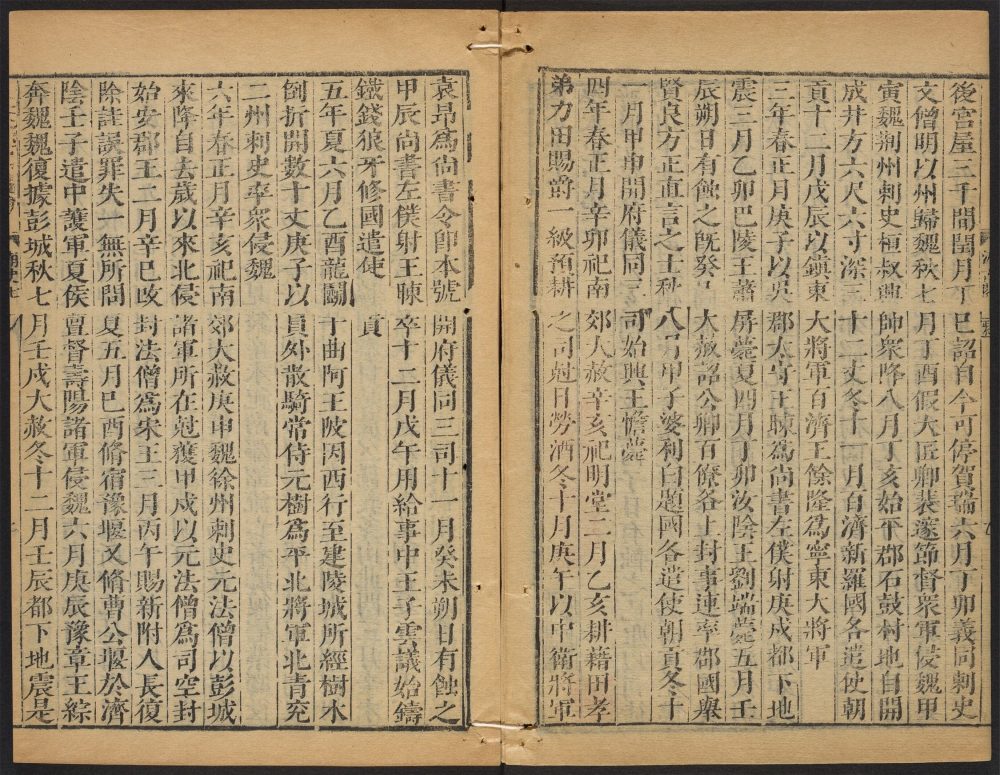 後宮屋三千間閏月丁巳詔自今可停賀瑞六月丁卯義同刺史
文僧明以州歸魏秋七月丁酉假大匠卿裴邃節督衆軍侵魏甲
寅魏荆州刺史桓叔興帥衆降八月丁亥始平郡石鼓村地自開
成井方六尺六寸深三十二丈冬十一月百濟新羅國各遣使朝
貢十二月戊辰以鎮東大將軍百濟王餘隆爲寧東大將軍
三年春正月庚子以吳郡太守王暕爲尚書左僕射庚戌都下地
震三月乙卯巴陵王蕭屏薨夏四月丁卯汝陰王劉端薨五月壬
辰朔日有蝕之旣癸巳大赦詔公卿百僚各上封事連率郡國舉
賢良方正直言之士秋八月甲子婆利白題國各遣使朝貢冬十
一月甲申開府儀同三司始興王憺薨
四年春正月辛卯祀南郊大赦辛亥祀明堂二月乙亥耕藉田孝
弟力田賜爵一級預耕之司尅日勞酒冬十月庚午以中衛將軍
袁昂爲尚書令卽本號開府儀同三司十一月癸未朔日有蝕之
甲辰尚書左僕射王暕卒十二月戊午用給事中王子雲議始鑄
鐵錢狼牙修國遣使貢
五年夏六月乙酉龍鬭于曲阿王陂因西行至建陵城所經樹木
倒折開數十丈庚子以員外散騎常侍元樹爲平北將軍北青兗
二州刺史率衆侵魏
六年春正月辛亥祀南郊大赦庚申魏徐州刺史元法僧以彭城
來降自去歲以來北侵諸軍所在尅獲甲戌以元法僧爲司空封
始安郡王二月辛巳改封法僧爲宋王三月丙午賜新附人長復
除詿誤罪失一無所問夏五月己酉脩宿豫堰又脩曹公堰於濟
陰壬子遣中護軍夏侯亶督壽陽諸軍侵魏六月庚辰豫章王綜
奔魏魏復據彭城秋七月壬戌大赦冬十二月壬辰都下地震是